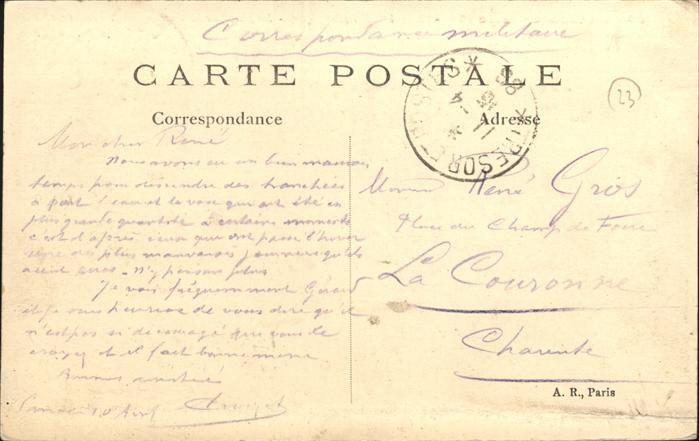 Correspondance militaire
CARTE POSTALE
Correspondance
Adresse
TRESOR ET POSTES
23
Mon cher René
Nous avons eu un bien mauvais
temps pour descendre des tranchées
à part l'eau et la voue qui ont été en
plus grande quantité à certains moments
c'est d'après ceux qui ont passé l'hiver
une des plus mauvaises journées qu'ils
aient eues - n'y pensons plus
Je vois fréquemment Gérard
et je suis heureux de vous dire qu'il
n'est pas si découragé que vous le
croyez et il fait bonne mine
Bonnes amitiés
10 Avril
Monsieur René Gros
Place du Champ de Foire
La Couronne
Charente
A. R., Paris